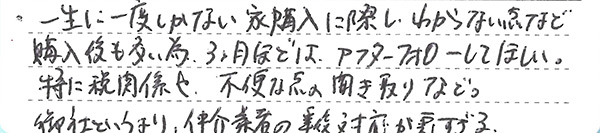 一生に一度しかない家購入に際し、わからない点など
購入後も多い為、3ヶ月ほどは、アフターフォローしてほしい。
特に税関係や、不便な点の聞き取りなど。
御社というより、仲介業者の事後対応が悪すぎる。